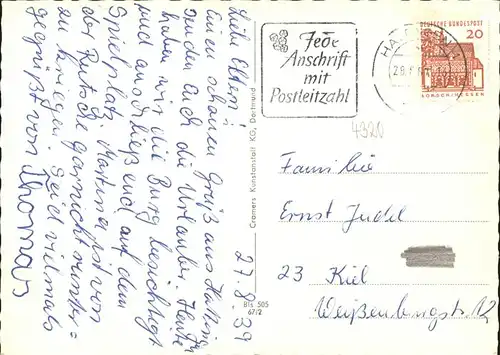 27.8.39
Liebe Eltern!
Einen schönen Gruß aus
senden auch die Urlauber. Heute
haben wir die Burg besichtigt
und anschließend auf dem
Spielplatz. Martina ist von
der Rutsche garnicht runter-
zu kriegen. Seid vielmals
gegrüßt von Thomas
Cramers Kunstanstalt KG, Dortmund
Bts 505
67/2
Jede
Anschrift
mit
Postleitzahl
DEUTSCHE BUNDESPOST
20
LORSCH/HESSEN
4320
Familie
Ernst Judel
23 Kiel
Weißenburgstr. 12